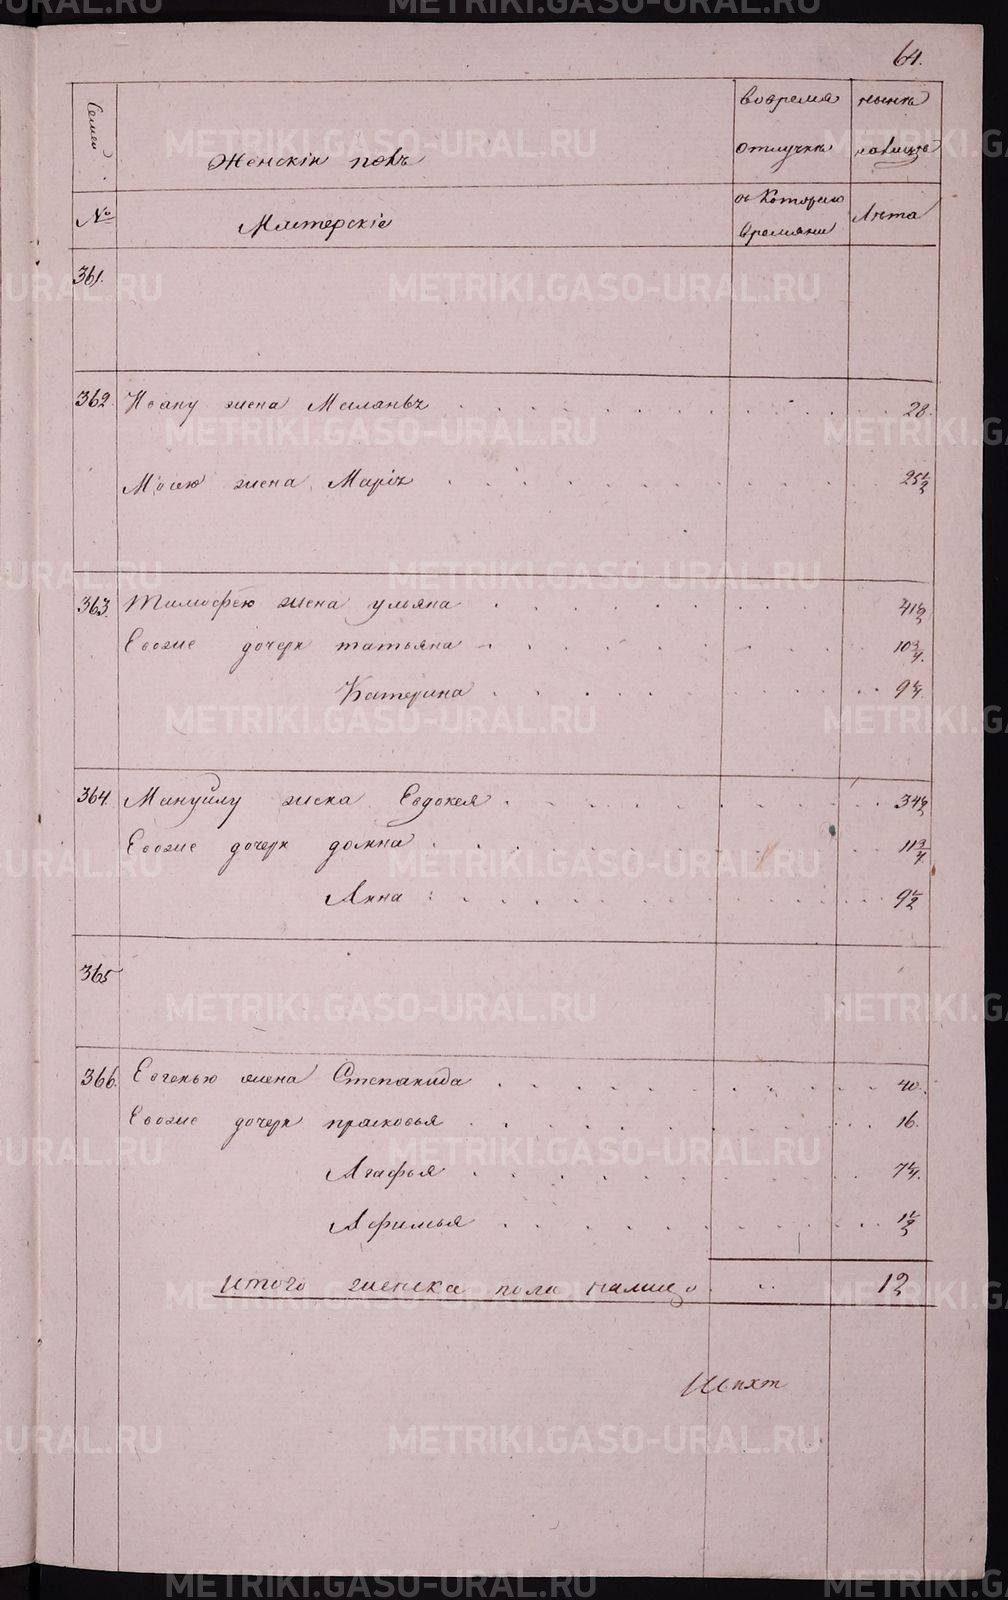 64.
Семей
Женскій полъ
Во время
отлучкѣ
нынѣ
налицѣ
№
Мастерскіе
съ Котораго
времяни
Лѣта
361.
362. Ивану жена Меланья 28.
Мосею жена Марія 25 1/2
363. Тимофею жена ульяна 41 1/2
Евоже дочери татьяна 10 3/4.
Катерина 9 1/4.
364. Мануйлу жена Евдокея 34 1/2
Евоже дочери домна 11 3/4.
Анна 9 1/2
365
366. Евгенью жена Степанида 40.
Евоже дочери прасковья 16.
Агафья 7 1/4.
Афимья 1 1/2
итого женска пола налицо 12
METRIKI.GASO-URAL.RU